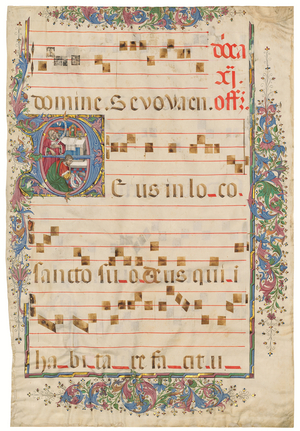 doca
xj.
domine. Sevovaen.
Deus in lo_co.
sancto su_o deus qui_i
ha_bi_ta_re fa_cit u_